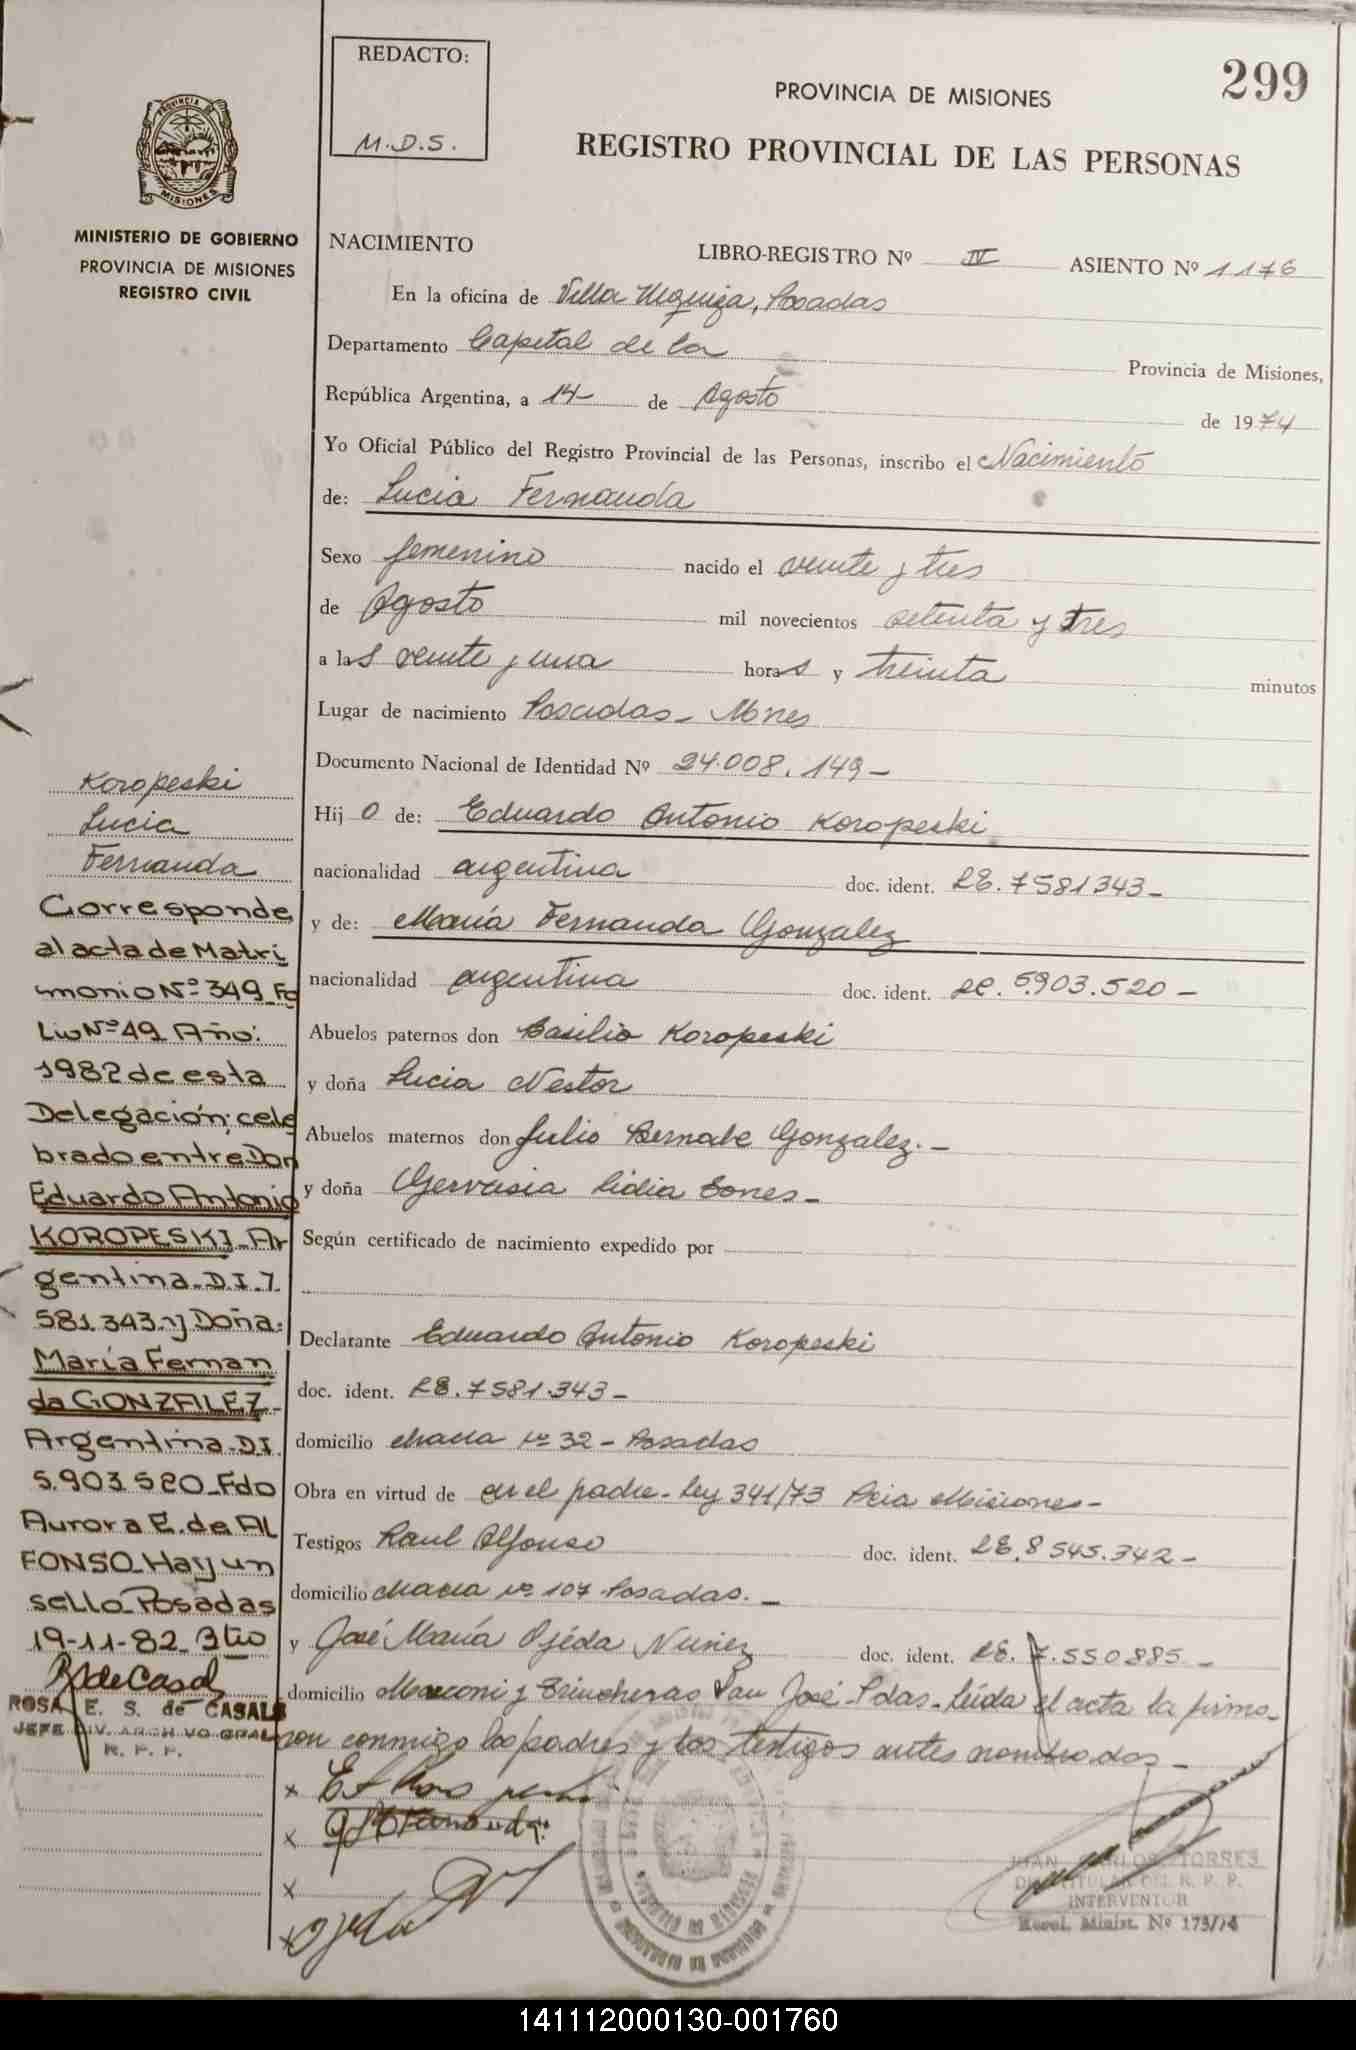 REDACTO:
M.D.S.
299
PROVINCIA DE MISIONES
REGISTRO PROVINCIAL DE LAS PERSONAS
PROVINCIA DE
MISIONES
MINISTERIO DE GOBIERNO
PROVINCIA DE MISIONES
REGISTRO CIVIL
NACIMIENTO LIBRO-REGISTRO Nº IV ASIENTO Nº 1176
En la oficina de Villa Urquiza, Posadas
Departamento Capital de la Provincia de Misiones,
República Argentina, a 14 de Agosto de 1974
Yo Oficial Público del Registro Provincial de las Personas, inscribo el Nacimiento
de: Lucia Fernanda
Sexo femenino nacido el veinte y tres
de Agosto mil novecientos setenta y tres
a las veinte y una horas y treinta minutos
Lugar de nacimiento Posadas - Mnes
Documento Nacional de Identidad Nº 24.008.149 -
Hijo de: Eduardo Antonio Koropeski
nacionalidad argentina doc. ident. LE. 7581343 -
y de: María Fernanda Gonzalez
nacionalidad argentina doc. ident. LC. 5.903.520 -
Abuelos paternos don Basilio Koropeski
y doña Lucia Nestor
Abuelos maternos don Julio Bernabe Gonzalez. -
y doña Gervasia Lidia
Según certificado de nacimiento expedido por
Declarante Eduardo Antonio Koropeski
doc. ident. LE. 7581.343 -
domicilio chacra nº 32 - Posadas
Obra en virtud de ser el padre - Ley 341/73 Pcia Misiones -
Testigos Raul Alfonso doc. ident. LE. 8545.342 -
domicilio chacra nº 107 Posadas. -
y José María Ojéda Nuñez doc. ident. LE. 7.550885 -
domicilio Marconi y Trincheras San José - Pdas - Leída el acta la firma-
ron conmigo los padres y los testigos antes nombrados -
Koropeski
Lucia
Fernanda
Corresponde
al acta de Matri
monio Nº 349 Fº
Liv Nº 49 Año:
1982 de esta
Delegación; cele
brado entre Don
Eduardo Antonio
KOROPESKI - Ar
gentina - D.I. 7
581.343 y Doña:
María Fernan
da GONZALEZ -
Argentina - D.I.
5.903.520 - Fdo
Aurora E. de AL
FONSO - Hay un
sello - Posadas
19-11-82
ROSA E. S. de CASALS
JEFE DIV. ARCHIVO GRAL
R. P. P.
x
x
x
x Ojeda
JUAN CARLOS TORRES
TITULAR DEL R. P. P.
INTERVENTOR
Resol. Minist. Nº 173/74
141112000130-001760